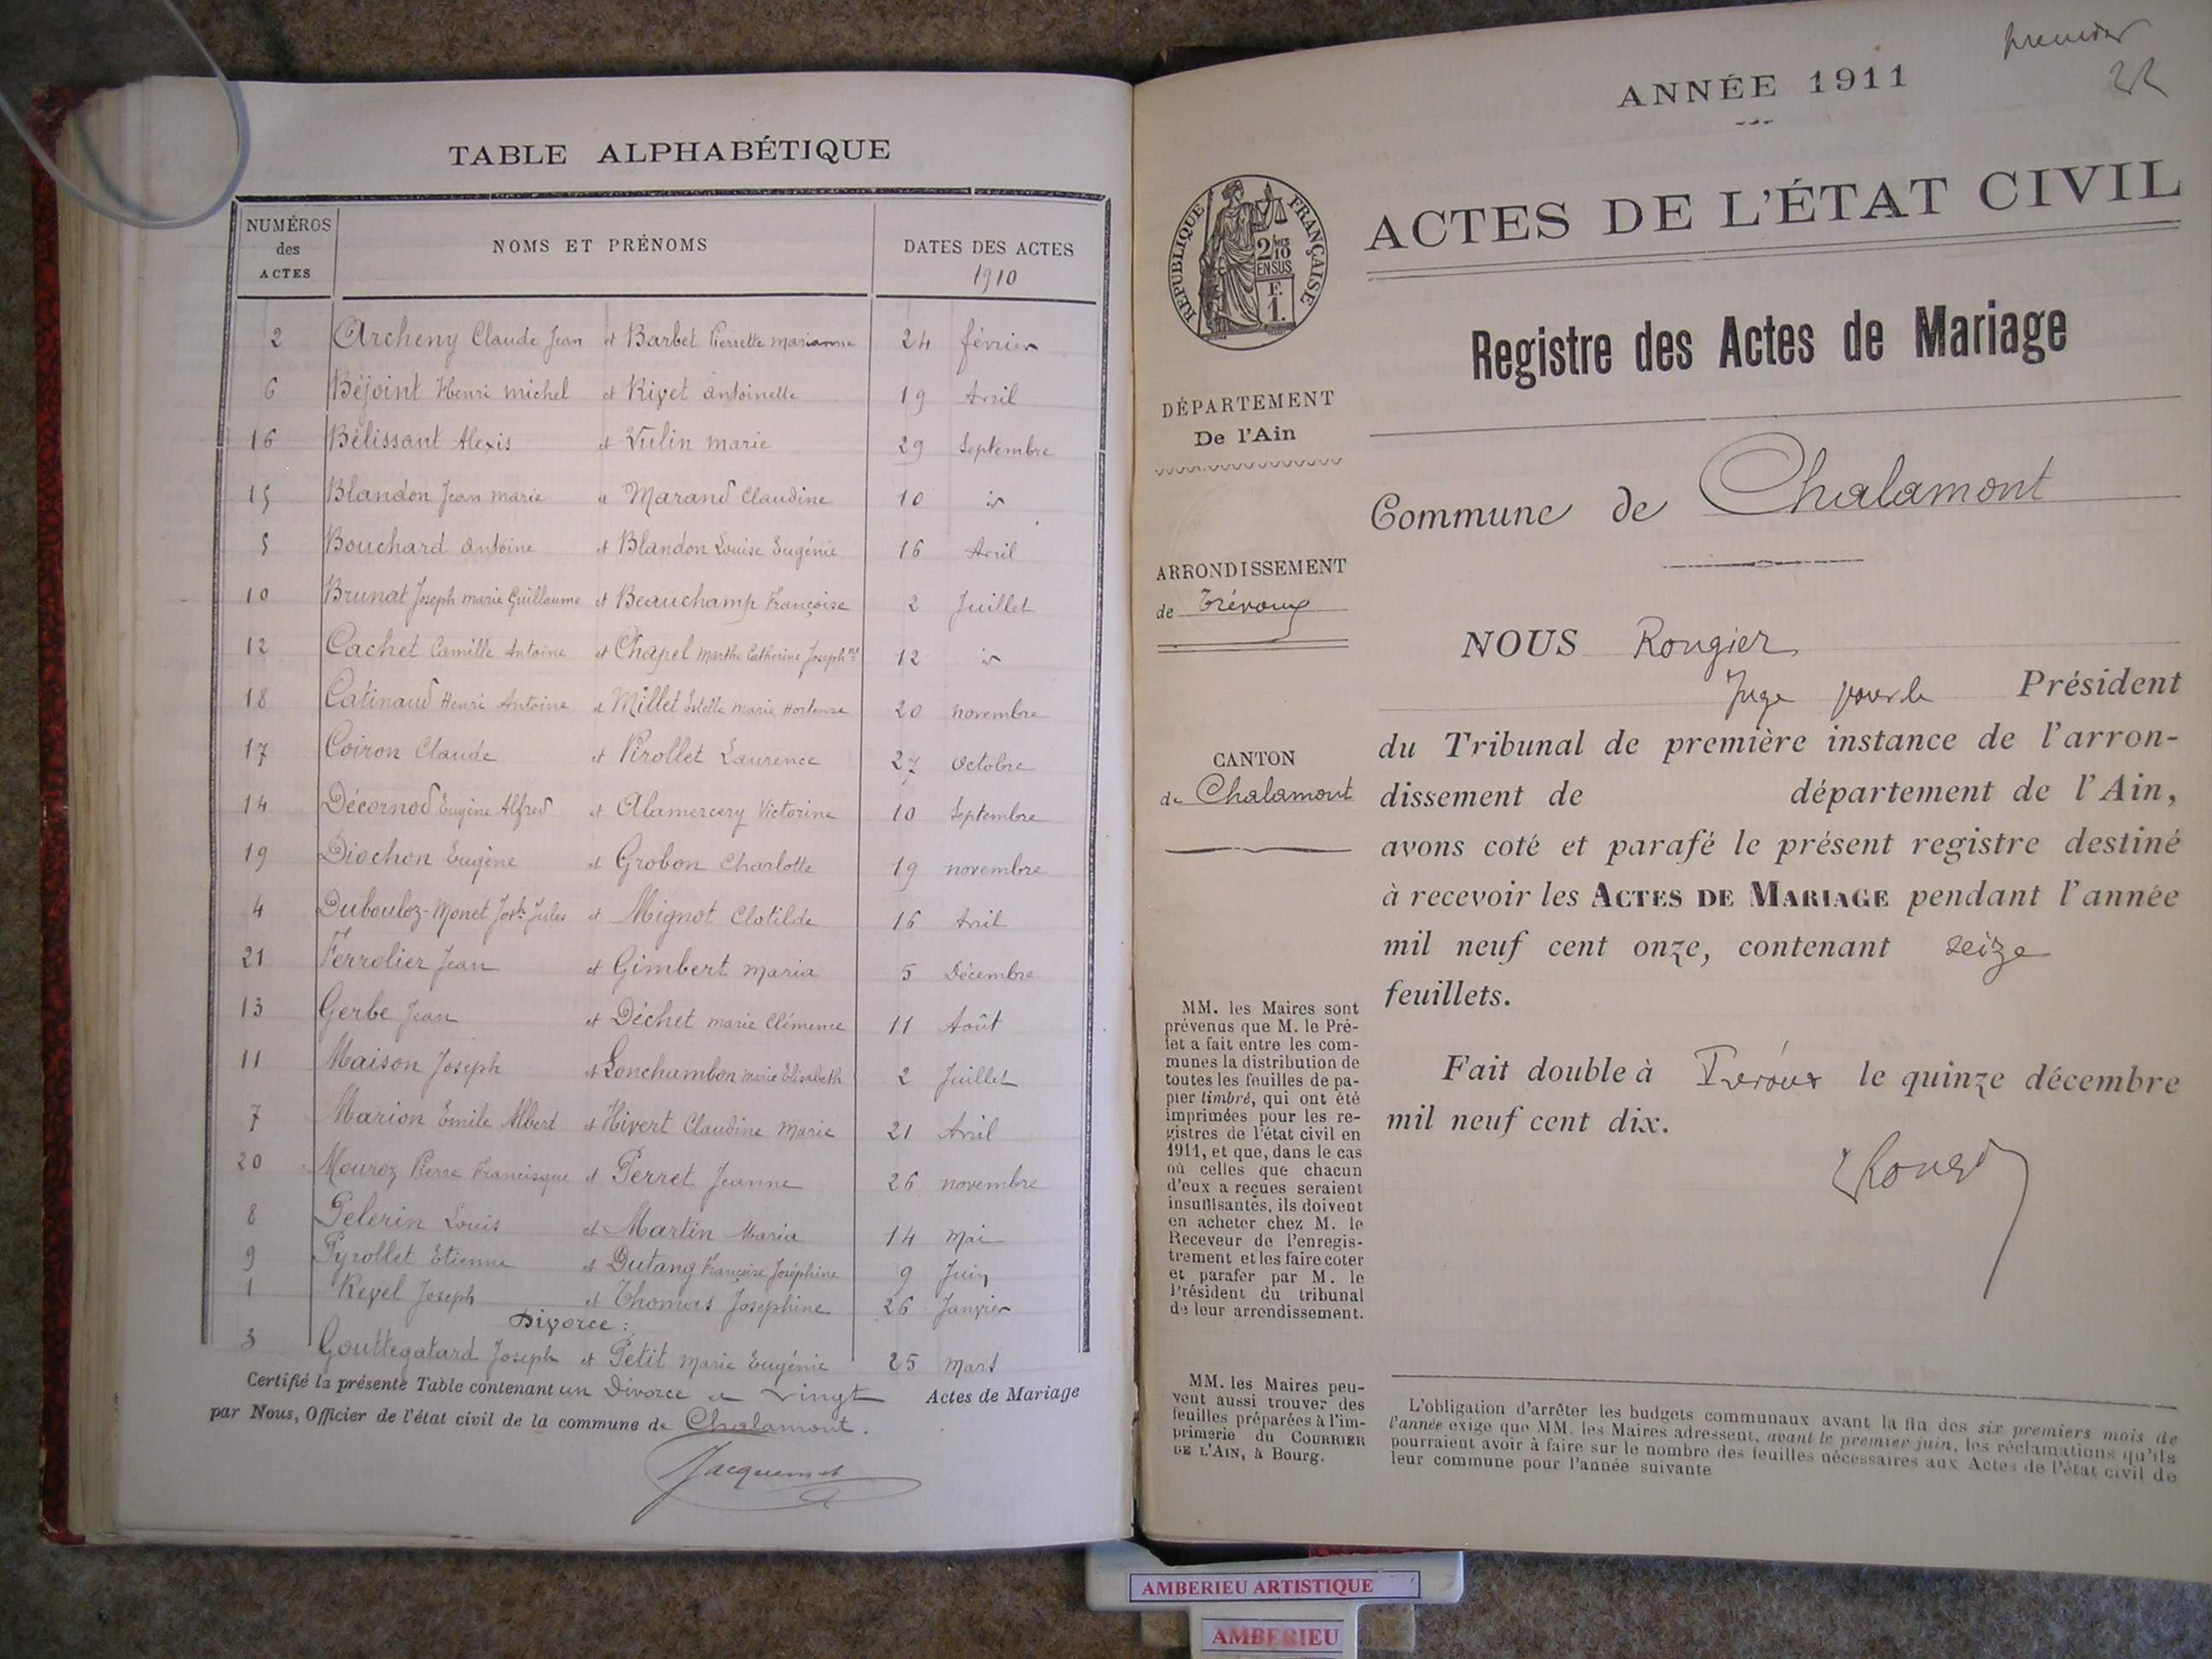 TABLE ALPHABÉTIQUE
NUMÉROS des ACTES
NOMS ET PRÉNOMS
DATES DES ACTES
1910
2 Archeny Claude Jean et Barbet Pierrette Marianne 24 février
6 Béjoint Henri Michel et Rivet Antoinette 19 Avril
16 Bélissant Alexis et Vulin Marie 29 Septembre
15 Blandon Jean Marie et Marand Claudine 10 id
5 Bouchard Antoine et Blandon Louise Eugénie 16 Avril
10 Brunat Joseph Marie Guillaume et Beauchamp Françoise 2 Juillet
12 Cachet Camille Antoine et Chapel Marthe Catherine Joseph^ne 12 id
18 Catinaud Henri Antoine et Millet Estelle Marie Hortense 20 novembre
17 Coiron Claude et Pirollet Laurence 27 Octobre
14 Décornod Eugène Alfred et Alamercery Victorine 10 Septembre
19 Diochon Eugène et Grobon Charlotte 19 novembre
4 Dubouloz-Monet Jules et Mignot Clotilde 16 Avril
21 Ferrolier Jean et Gimbert Maria 5 Décembre
13 Gerbe Jean et Déchet Marie Clémence 11 Août
11 Maison Joseph et Lonchambon Marie Elisabeth 2 Juillet
7 Marion Emile Albert et Hivert Claudine Marie 21 Avril
20 Mouroz Pierre Francisque et Perret Jeanne 26 novembre
8 Pelerin Louis et Martin Maria 14 Mai
9 Pyrollet Etienne et Dutang Françoise Joséphine 9 Juin
1 Revel Joseph et Thomas Josephine 26 Janvier
Divorce :
3 Gouttegatard Joseph et Petit Marie Eugénie 25 Mars
Certifié la présente Table contenant un Divorce et vingt Actes de Mariage
par Nous, Officier de l'état civil de la commune de Chalamont.
Jacquemet
premier
ANNÉE 1911
ACTES DE L'ÉTAT CIVIL
REPUBLIQUE FRANÇAISE
2/10
EN SUS
F.
1.
Registre des Actes de Mariage
DÉPARTEMENT
De l'Ain
Commune de Chalamont
ARRONDISSEMENT
de Trévoux
NOUS Rougier
Juge pour le Président
du Tribunal de première instance de l'arron-
CANTON
de Chalamont
dissement de département de l'Ain,
avons coté et parafé le présent registre destiné
à recevoir les ACTES DE MARIAGE pendant l'année
mil neuf cent onze, contenant seize
feuillets.
Fait double à Trévoux le quinze décembre
mil neuf cent dix.
Rougier
MM. les Maires sont
prévenus que M. le Pré-
fet a fait entre les com-
munes la distribution de
toutes les feuilles de pa-
pier timbré, qui ont été
imprimées pour les re-
gistres de l'état civil en
1911, et que, dans le cas
où celles que chacun
d'eux a reçues seraient
insuffisantes, ils doivent
en acheter chez M. le
Receveur de l'enregis-
trement et les faire coter
et parafer par M. le
Président du tribunal
de leur arrondissement.
MM. les Maires peu-
vent aussi trouver des
feuilles préparées à l'im-
primerie du COURRIER
DE L'AIN, à Bourg.
L'obligation d'arrêter les budgets communaux avant la fin des six premiers mois de
l'année exige que MM. les Maires adressent, avant le premier juin, les réclamations qu'ils
pourraient avoir à faire sur le nombre des feuilles nécessaires aux Actes de l'état civil de
leur commune pour l'année suivante
AMBERIEU ARTISTIQUE
AMBERIEU